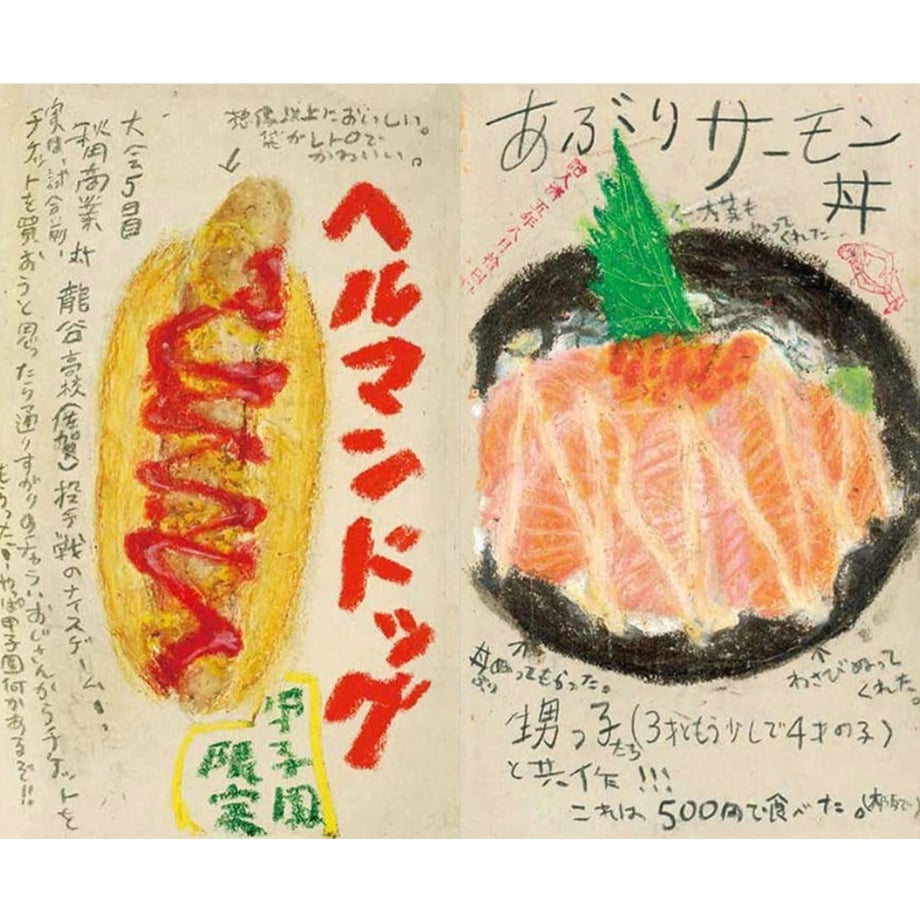 大会5日目
秋田商業 対 龍谷高校(佐賀) 投手戦のナイスゲーム!!
実は、試合前、
チケットを買おうと思ったら通りすがりの
おじさんからチケットを
もらった! やっぱ甲子園何かあるぞ!!
想像以上においしい。
袋がレトロで
かわいい。
ヘルマンドッグ
甲子園
限定
あぶりサーモン
丼
大葉も
ぬって
くれた…
丼ぬってもらった。
わさびぬって
くれた。
甥っ子たち(3才ともう少しで4才の子)
と共作!!!
これは500円で食べた。